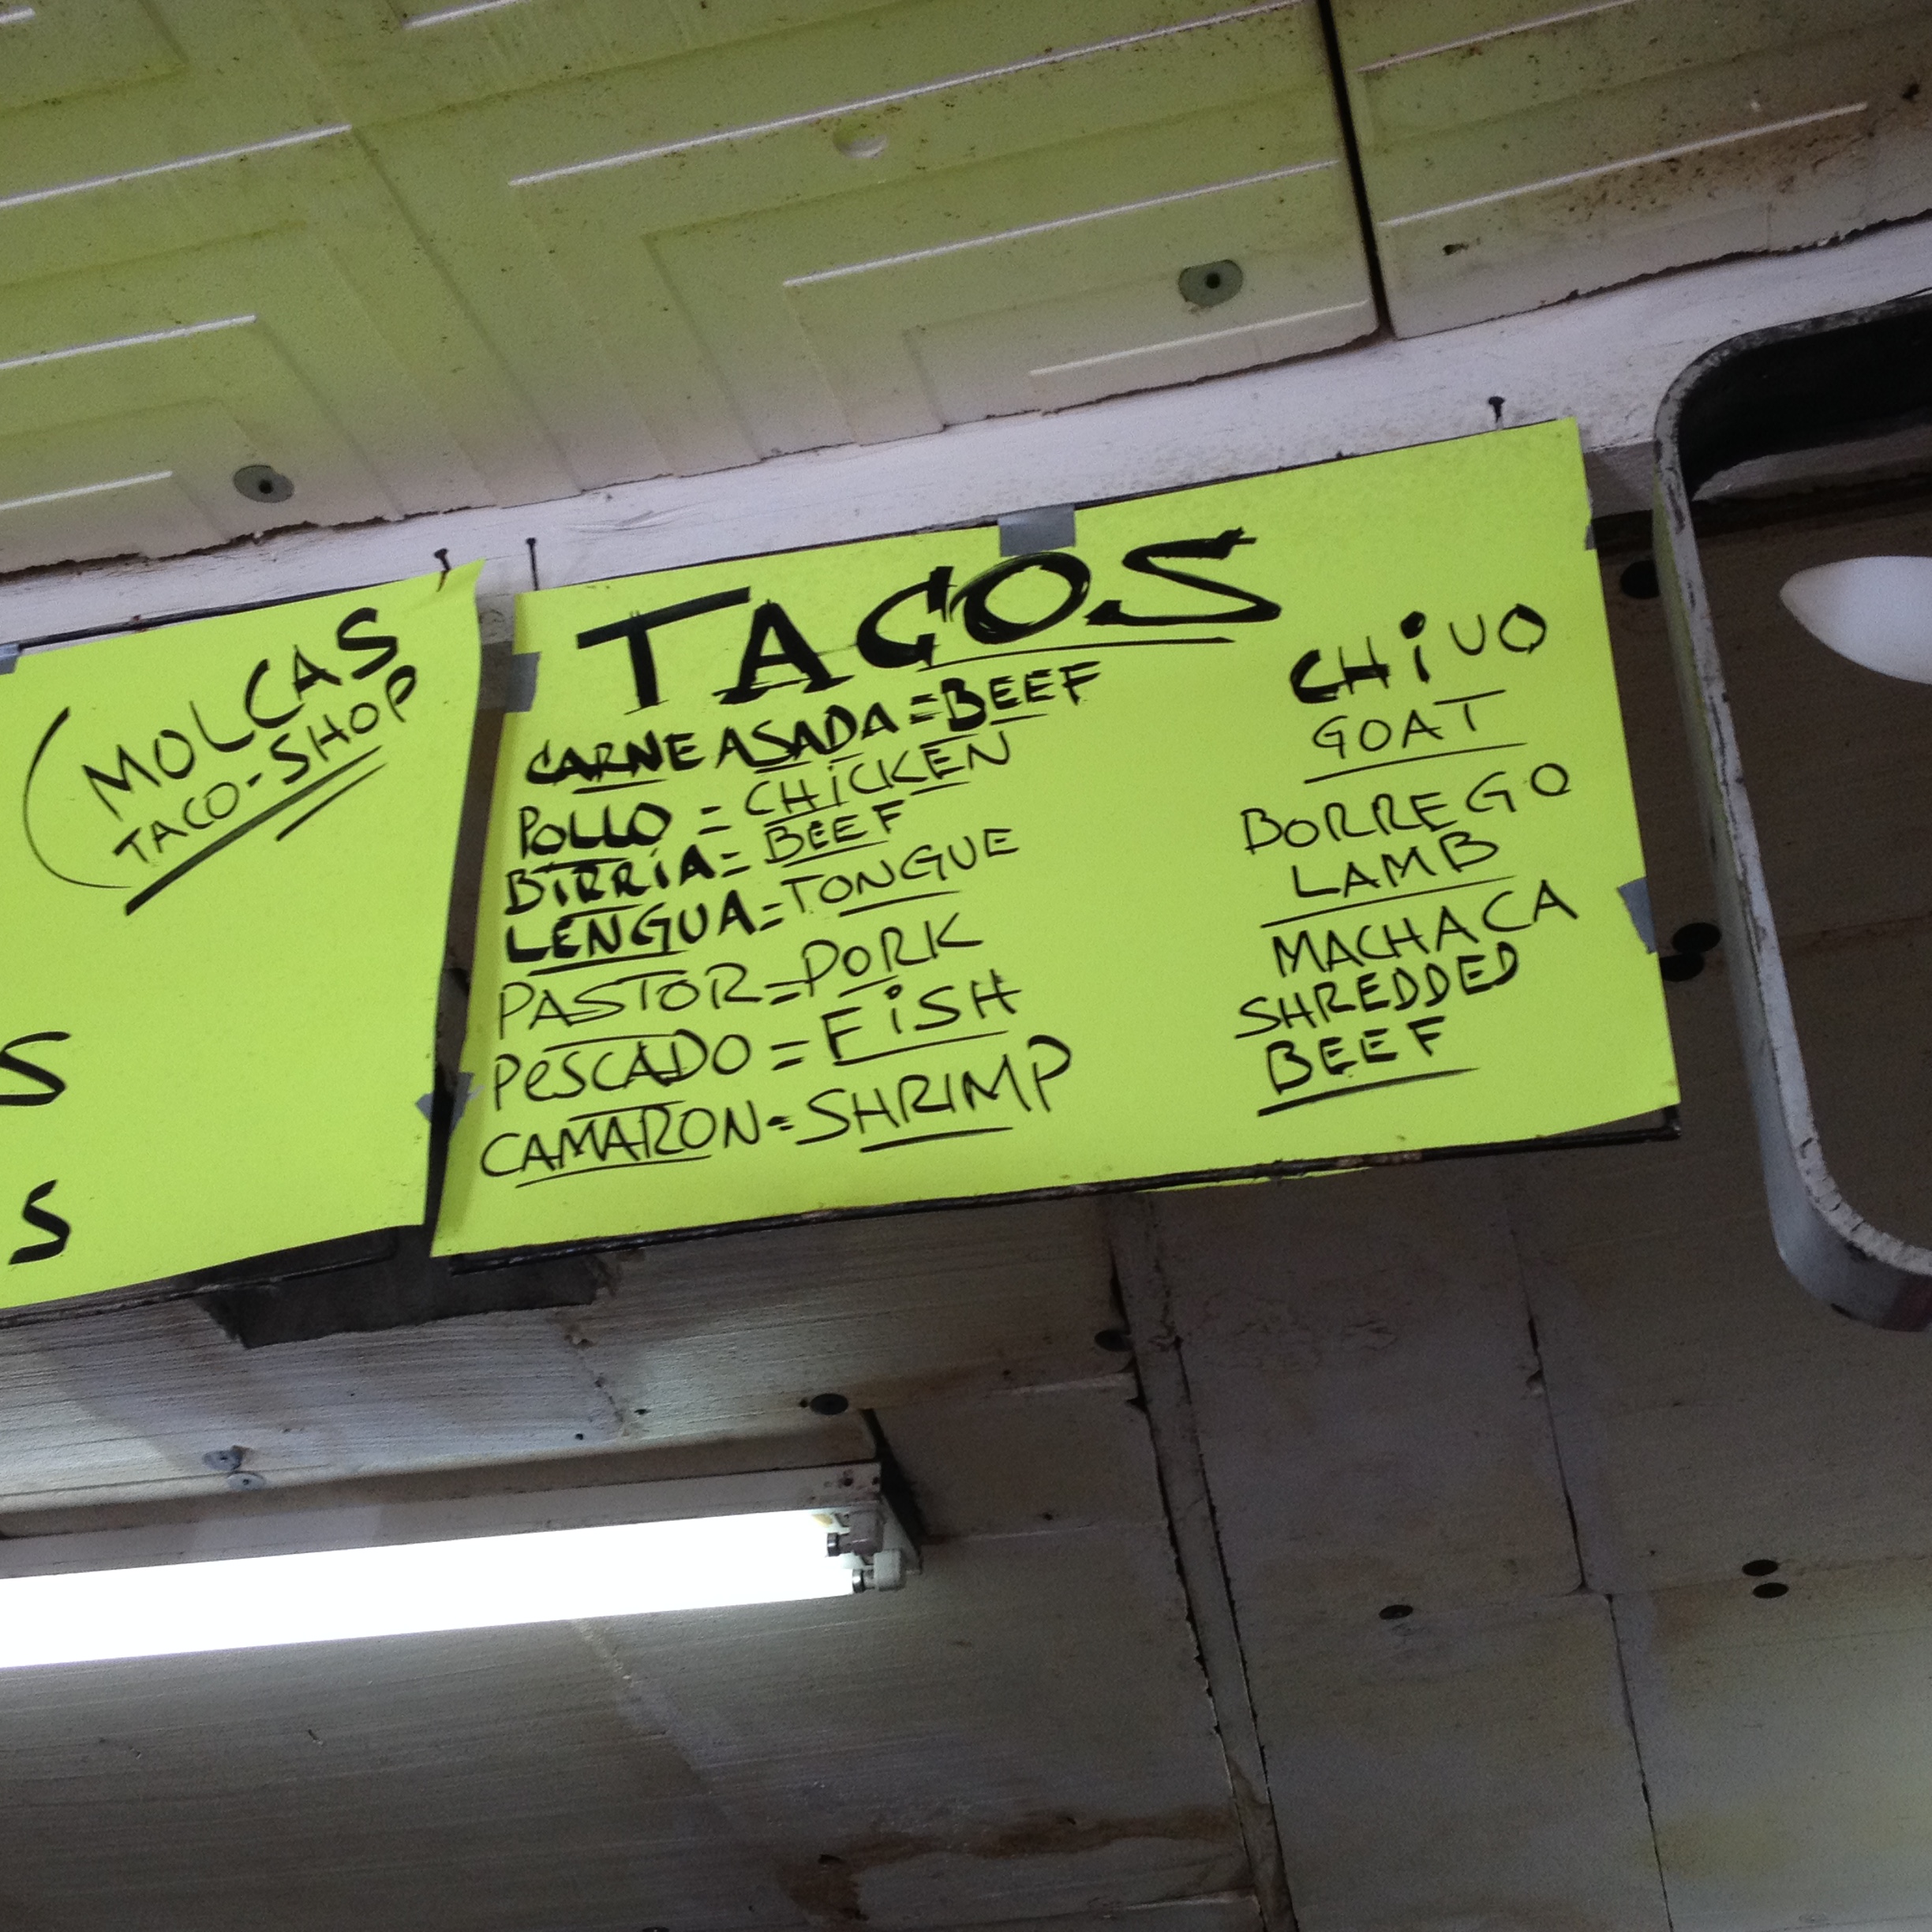 MOLCAS
TACO-SHOP
S
S
TACOS
CARNE ASADA = BEEF
POLLO = CHICKEN
BIRRIA = BEEF
LENGUA = TONGUE
PASTOR = PORK
PESCADO = FISH
CAMARON = SHRIMP
CHIVO
GOAT
BORREGO
LAMB
MACHACA
SHREDDED
BEEF